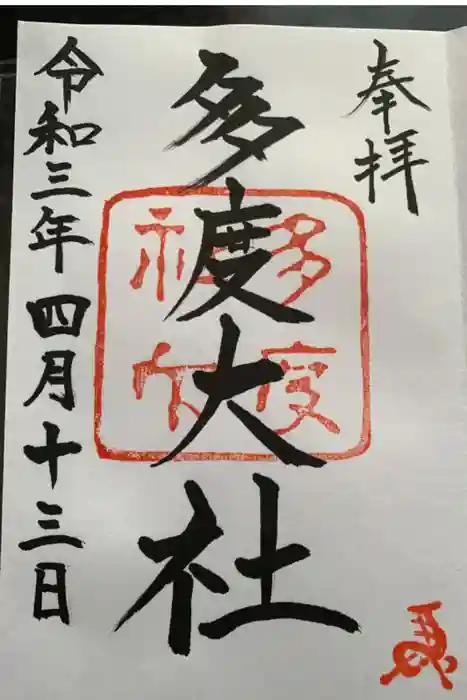 奉拝
多度大社
令和三年四月十三日
多度